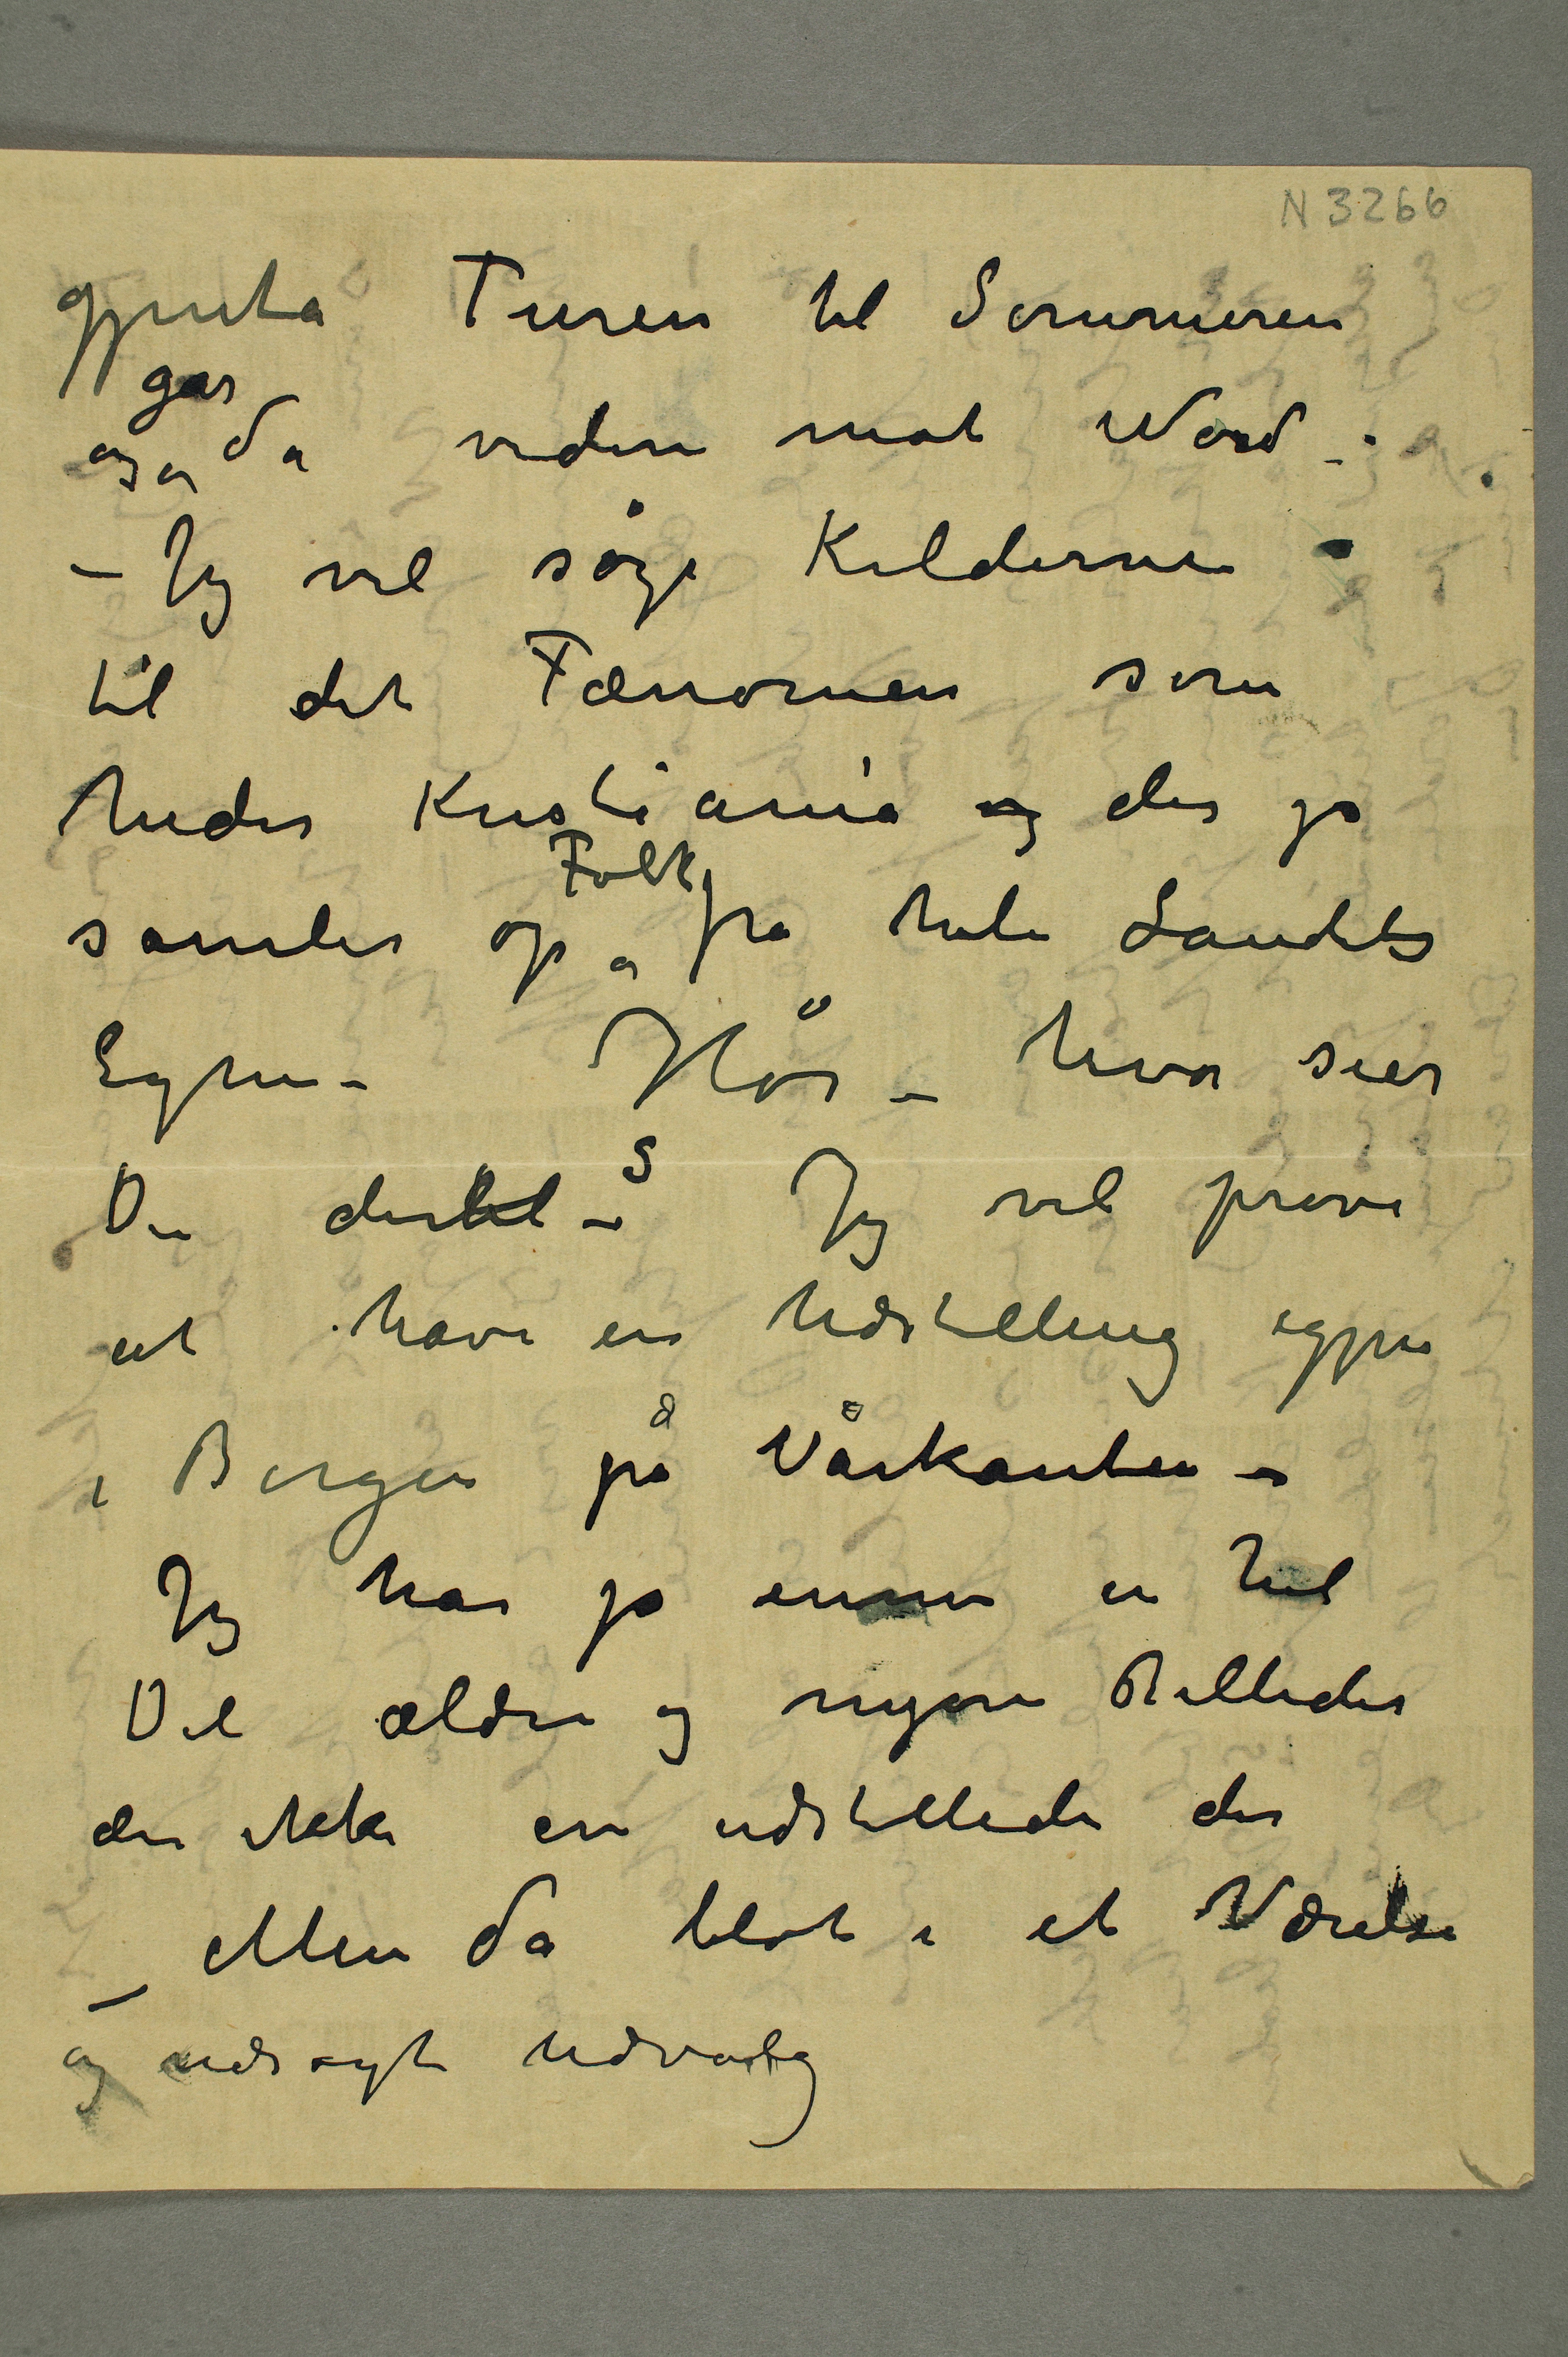 N 3266
gjenta Turen til Sommeren
og går da videre mot Nord –.
– Jeg vil søge Kilderne
til det Fænomen som
heder Kristiania og der jo
samler op Folk fra hele Landets
Egne – Hør – hvad sier
Du dertil –? Jeg vil prøve
at have en Udstilling igjen
i Bergen på Vårkanten –
Jeg har jo ennu en hel
Del ældre og nyere Billeder
der ikke er udstillede der
– Men da blot i et Værelse
og udsøgt Udvalg